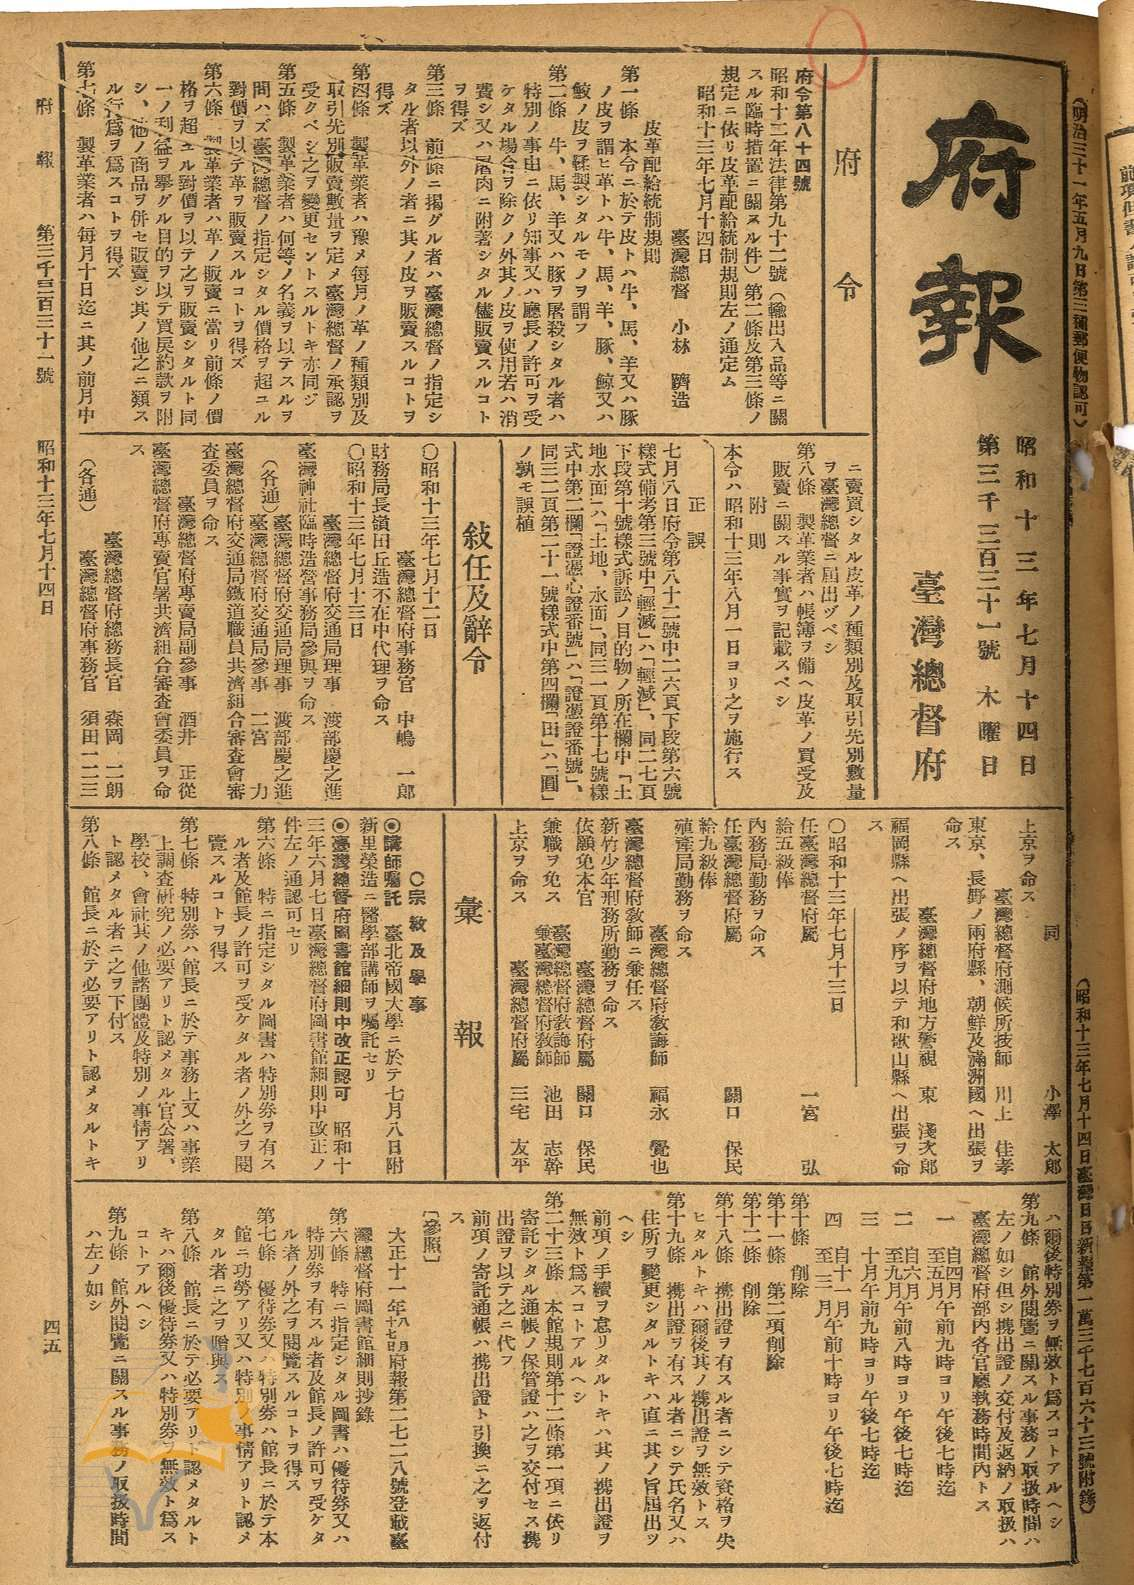 (明治三十一年五月九日第三種郵便物認可)
(昭和十三年七月十四日臺灣日日新報第一萬三千七百六十三號附錄)
府報
昭和十三年七月十四日
第三千三百三十一號 木曜日
臺灣總督府
府令
府令第八十四號
昭和十二年法律第九十二號(輸出入品等ニ關
スル臨時措置ニ關スル件)第二條及第三條ノ
規定ニ依リ皮革配給統制規則左ノ通定ム
昭和十三年七月十四日
臺灣總督 小林 躋造
皮革配給統制規則
第一條 本令ニ於テ皮トハ牛、馬、羊又ハ豚
ノ皮ヲ謂ヒ革トハ牛、馬、羊、豚、鯨又ハ
鮫ノ皮ヲ鞣製シタルモノヲ謂フ
第二條 牛、馬、羊又ハ豚ヲ屠殺シタル者ハ
特別ノ事由ニ依リ知事又ハ廳長ノ許可ヲ受
ケタル場合ヲ除クノ外其ノ皮ヲ使用若ハ消
費シ又ハ屠肉ニ附著シタル儘販賣スルコト
ヲ得ズ
第三條 前條ニ揭グル者ハ臺灣總督ノ指定シ
タル者以外ノ者ニ其ノ皮ヲ販賣スルコトヲ
得ズ
第四條 製革業者ハ豫メ每月ノ革ノ種類別及
取引先別販賣數量ヲ定メ臺灣總督ノ承認ヲ
受クベシ之ヲ變更セントスルトキ亦同ジ
第五條 製革業者ハ何等ノ名義ヲ以テスルヲ
問ハズ臺灣總督ノ指定シタル價格ヲ超ユル
對價ヲ以テ革ヲ販賣スルコトヲ得ズ
第六條 製革業者ハ革ノ販賣ニ當リ前條ノ價
格ヲ超ユル對價ヲ以テ之ヲ販賣シタルト同
一ノ利益ヲ擧グル目的ヲ以テ買戾約款ヲ附
シ、他ノ商品ヲ併セ販賣シ其ノ他之ニ類ス
ル行爲ヲ爲スコトヲ得ズ
第七條 製革業者ハ每月十日迄ニ其ノ前月中
ニ賣買シタル皮革ノ種類別及取引先別數量
ヲ臺灣總督ニ屆出ヅベシ
第八條 製革業者ハ帳簿ヲ備ヘ皮革ノ買受及
販賣ニ關スル事實ヲ記載スベシ
附則
本令ハ昭和十三年八月一日ヨリ之ヲ施行ス
正誤
七月八日府令第八十二號中二六頁下段第六號
樣式備考第三號中「輕減」ハ「輕減」、同二七頁
下段第十號樣式訴訟ノ目的物ノ所在欄中「土
地水面」ハ「土地、水面」、同三一頁第十七號樣
式中第二欄「證憑心證番號」ハ「證憑證番號」、
同三二頁第二十一號樣式中第四欄「田」ハ「圓」
ノ孰モ誤植
敍任及辭令
〇昭和十三年七月十二日
臺灣總督府事務官 中嶋 一郎
財務局長嶺田丘造不在中代理ヲ命ス
〇昭和十三年七月十三日
臺灣總督府交通局理事 渡部慶之進
臺灣神社臨時造營事務局參與ヲ命ス
臺灣總督府交通局理事 渡部慶之進
(各通)臺灣總督府交通局參事 二宮 力
臺灣總督府交通局鐵道職員共濟組合審査會審
査委員ヲ命ス
臺灣總督府專賣局副參事 酒井 正從
臺灣總督府專賣官署共濟組合審査會委員ヲ命
ス
臺灣總督府總務長官 森岡 二朗
(各通) 臺灣總督府事務官 須田一二三
上京ヲ命ス
同 小澤 太郎
臺灣總督府測候所技師 川上 佳孝
東京、長野ノ兩府縣、朝鮮及滿洲國ヘ出張ヲ
命ス
臺灣總督府地方警視 東 淺次郎
福岡縣ヘ出張ノ序ヲ以テ和歌山縣ヘ出張ヲ命
ス
〇昭和十三年七月十三日
任臺灣總督府屬 一宮 弘
給五級俸
內務局勤務ヲ命ス
任臺灣總督府屬 關口 保民
給九級俸
殖產局勤務ヲ命ス
臺灣總督府敎誨師 福永 覺也
臺灣總督府敎師ニ兼任ス
新竹少年刑務所勤務ヲ命ス
臺灣總督府屬 關口 保民
依願免本官
臺灣總督府敎誨師
兼臺灣總督府敎師 池田 志幹
兼職ヲ免ス
臺灣總督府屬 三宅 友平
上京ヲ命ス
彙報
〇宗敎及學事
◎講師囑託 臺北帝國大學ニ於テ七月八日附
新里榮造ニ醫學部講師ヲ囑託セリ
◎臺灣總督府圖書館細則中改正認可 昭和十
三年六月七日臺灣總督府圖書館細則中改正ノ
件左ノ通認可セリ
第六條 特ニ指定シタル圖書ハ特別券ヲ有ス
ル者及館長ノ許可ヲ受ケタル者ノ外之ヲ閱
覽スルコトヲ得ス
第七條 特別券ハ館長ニ於テ事務上又ハ事業
上調査硏究ノ必要アリト認メタル官公署、
學校、會社其ノ他諸團體及特別ノ事情アリ
ト認メタル者ニ之ヲ下付ス
第八條 館長ニ於テ必要アリト認メタルトキ
ハ爾後特別券ヲ無效ト爲スコトアルヘシ
第九條 館外閱覽ニ關スル事務ノ取扱時間ハ
左ノ如シ但シ携出證ノ交付及返納ノ取扱ハ
臺灣總督府部內各官廳執務時間內トス
一 自四月至五月 午前九時ヨリ午後七時迄
二 自六月至九月 午前八時ヨリ午後七時迄
三 十月午前九時ヨリ午後七時迄
四 自十一月至三月 午前十時ヨリ午後七時迄
第十條 削除
第十一條 第二項削除
第十二條 削除
第十八條 携出證ヲ有スル者ニシテ資格ヲ失
ヒタルトキハ爾後其ノ携出證ヲ無效トス
第十九條 携出證ヲ有スル者ニシテ氏名又ハ
住所ヲ變更シタルトキハ直ニ其ノ旨屆出ツ
ヘシ
前項ノ手續ヲ怠リタルトキハ其ノ携出證ヲ
無效ト爲スコトアルヘシ
第二十三條 本館規則第十二條第一項ニ依リ
寄託シタル通帳ノ保管證ハ之ヲ交付セス携
出證ヲ以テ之ニ代フ
前項ノ寄託通帳ハ携出證ト引換ニ之ヲ返付
ス
〔參照〕
大正十一年八月十七日府報第二七二八號登載臺
灣總督府圖書館細則抄錄
第六條 特ニ指定シタル圖書ハ優待券又ハ
特別券ヲ有スル者及館長ノ許可ヲ受ケタ
ル者ノ外之ヲ閱覽スルコトヲ得ス
第七條 優待券又ハ特別券ハ館長ニ於テ本
館ニ功勞アリ又ハ特別ノ事情アリト認メ
タル者ニ之ヲ贈與ス
第八條 館長ニ於テ必要アリト認メタルト
キハ爾後優待券又ハ特別券ヲ無效ト爲ス
コトアルヘシ
第九條 館外閱覽ニ關スル事務ノ取扱時間
ハ左ノ如シ
府報 第三千三百三十一號 昭和十三年七月十四日
四五